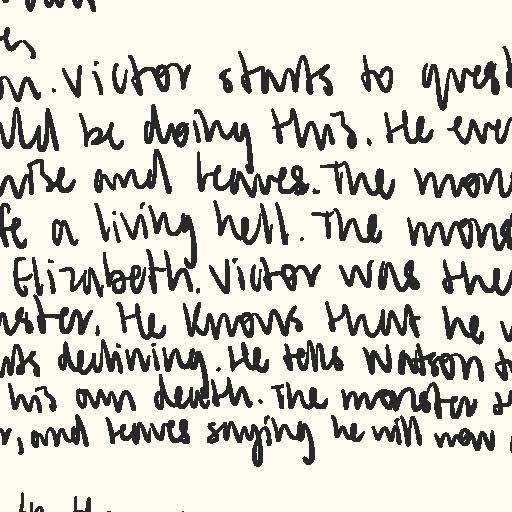 on. Victor starts to quest
uld be doing this. He eve
wise and leaves. The mons
fe a living hell. The mons
Elizabeth. Victor was the
nster. He knows that he w
declining. He tells Watson t
his own death. The monster
r, and leaves saying he will now